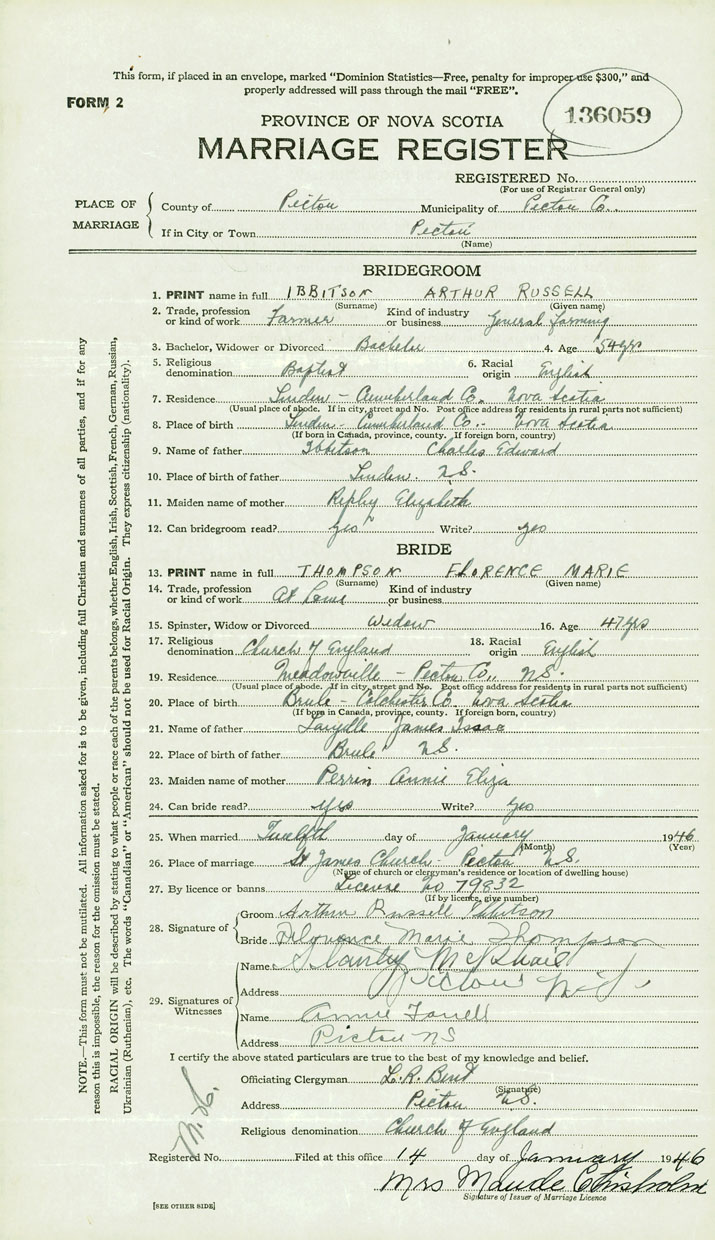 This form, if placed in an envelope, marked "Dominion Statistics—Free, penalty for improper use $300," and
properly addressed will pass through the mail "FREE".
FORM 2
136059
PROVINCE OF NOVA SCOTIA
MARRIAGE REGISTER
REGISTERED No.
(For use of Registrar General only)
PLACE OF MARRIAGE
County of Pictou Municipality of Pictou Co.
If in City or Town Pictou
(Name)
BRIDEGROOM
1. PRINT name in full IBBITSON ARTHUR RUSSELL
(Surname) (Given name)
2. Trade, profession or kind of work Farmer Kind of industry or business General farming
3. Bachelor, Widower or Divorced Bachelor 4. Age 54 yrs
5. Religious denomination Baptist 6. Racial origin English
7. Residence Linden - Cumberland Co. Nova Scotia
(Usual place of abode. If in city, street and No. Post office address for residents in rural parts not sufficient)
8. Place of birth Linden - Cumberland Co. - Nova Scotia
(If born in Canada, province, county. If foreign born, country)
9. Name of father Ibbitson Charles Edward
10. Place of birth of father Linden. N.S.
11. Maiden name of mother Ripley Elizabeth
12. Can bridegroom read? yes Write? yes
BRIDE
13. PRINT name in full THOMPSON FLORENCE MARIE
(Surname) (Given name)
14. Trade, profession or kind of work At home Kind of industry or business
15. Spinster, Widow or Divorced Widow 16. Age 47 yrs
17. Religious denomination Church of England 18. Racial origin English
19. Residence Meadowville - Pictou Co., N.S.
(Usual place of abode. If in city, street and No. Post office address for residents in rural parts not sufficient)
20. Place of birth Brule - Colchester Co. Nova Scotia
(If born in Canada, province, county. If foreign born, country)
21. Name of father James Isaac
22. Place of birth of father Brule N.S.
23. Maiden name of mother Perrin Annie Eliza
24. Can bride read? yes Write? yes
25. When married Twelfth day of January 1946
(Month) (Year)
26. Place of marriage St James Church - Pictou N.S.
(Name of church or clergyman's residence or location of dwelling house)
27. By licence or banns License no 79832
(If by licence, give number)
28. Signature of
Groom Arthur Russell Ibbitson
Bride Florence Marie Thompson
29. Signatures of Witnesses
Name Stanley McPhail
Address Pictou N.S.
Name Annie
Address Pictou NS
I certify the above stated particulars are true to the best of my knowledge and belief.
Officiating Clergyman L.R. Bent
(Signature)
Address Pictou N.S.
Religious denomination Church of England
Registered No. Filed at this office 14 day of January 1946
Mrs Maude Chisholm
Signature of Issuer of Marriage Licence
[SEE OTHER SIDE]
NOTE.—This form must not be mutilated. All information asked for is to be given, including full Christian and surnames of all parties, and if for any
reason this is impossible, the reason for the omission must be stated.
RACIAL ORIGIN will be described by stating to what people or race each of the parents belongs, whether English, Irish, Scottish, French, German, Russian,
Ukrainian (Ruthenian), etc. The words "Canadian" or "American" should not be used for Racial Origin. They express citizenship (nationality).